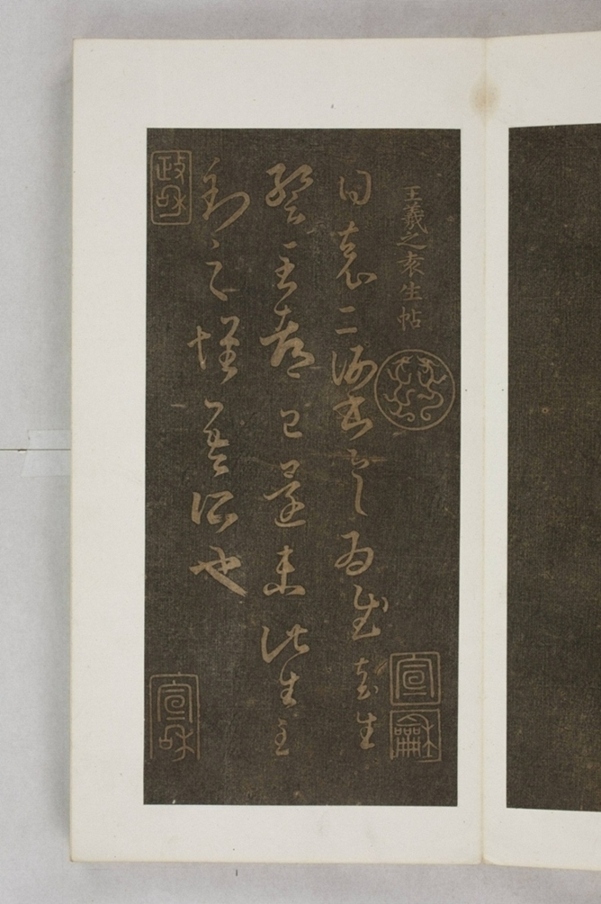 王羲之袁生帖
得袁二謝書具為慰袁生
暫至都已還未此生至
到之懷吾所也
宣龢
政和
宣和